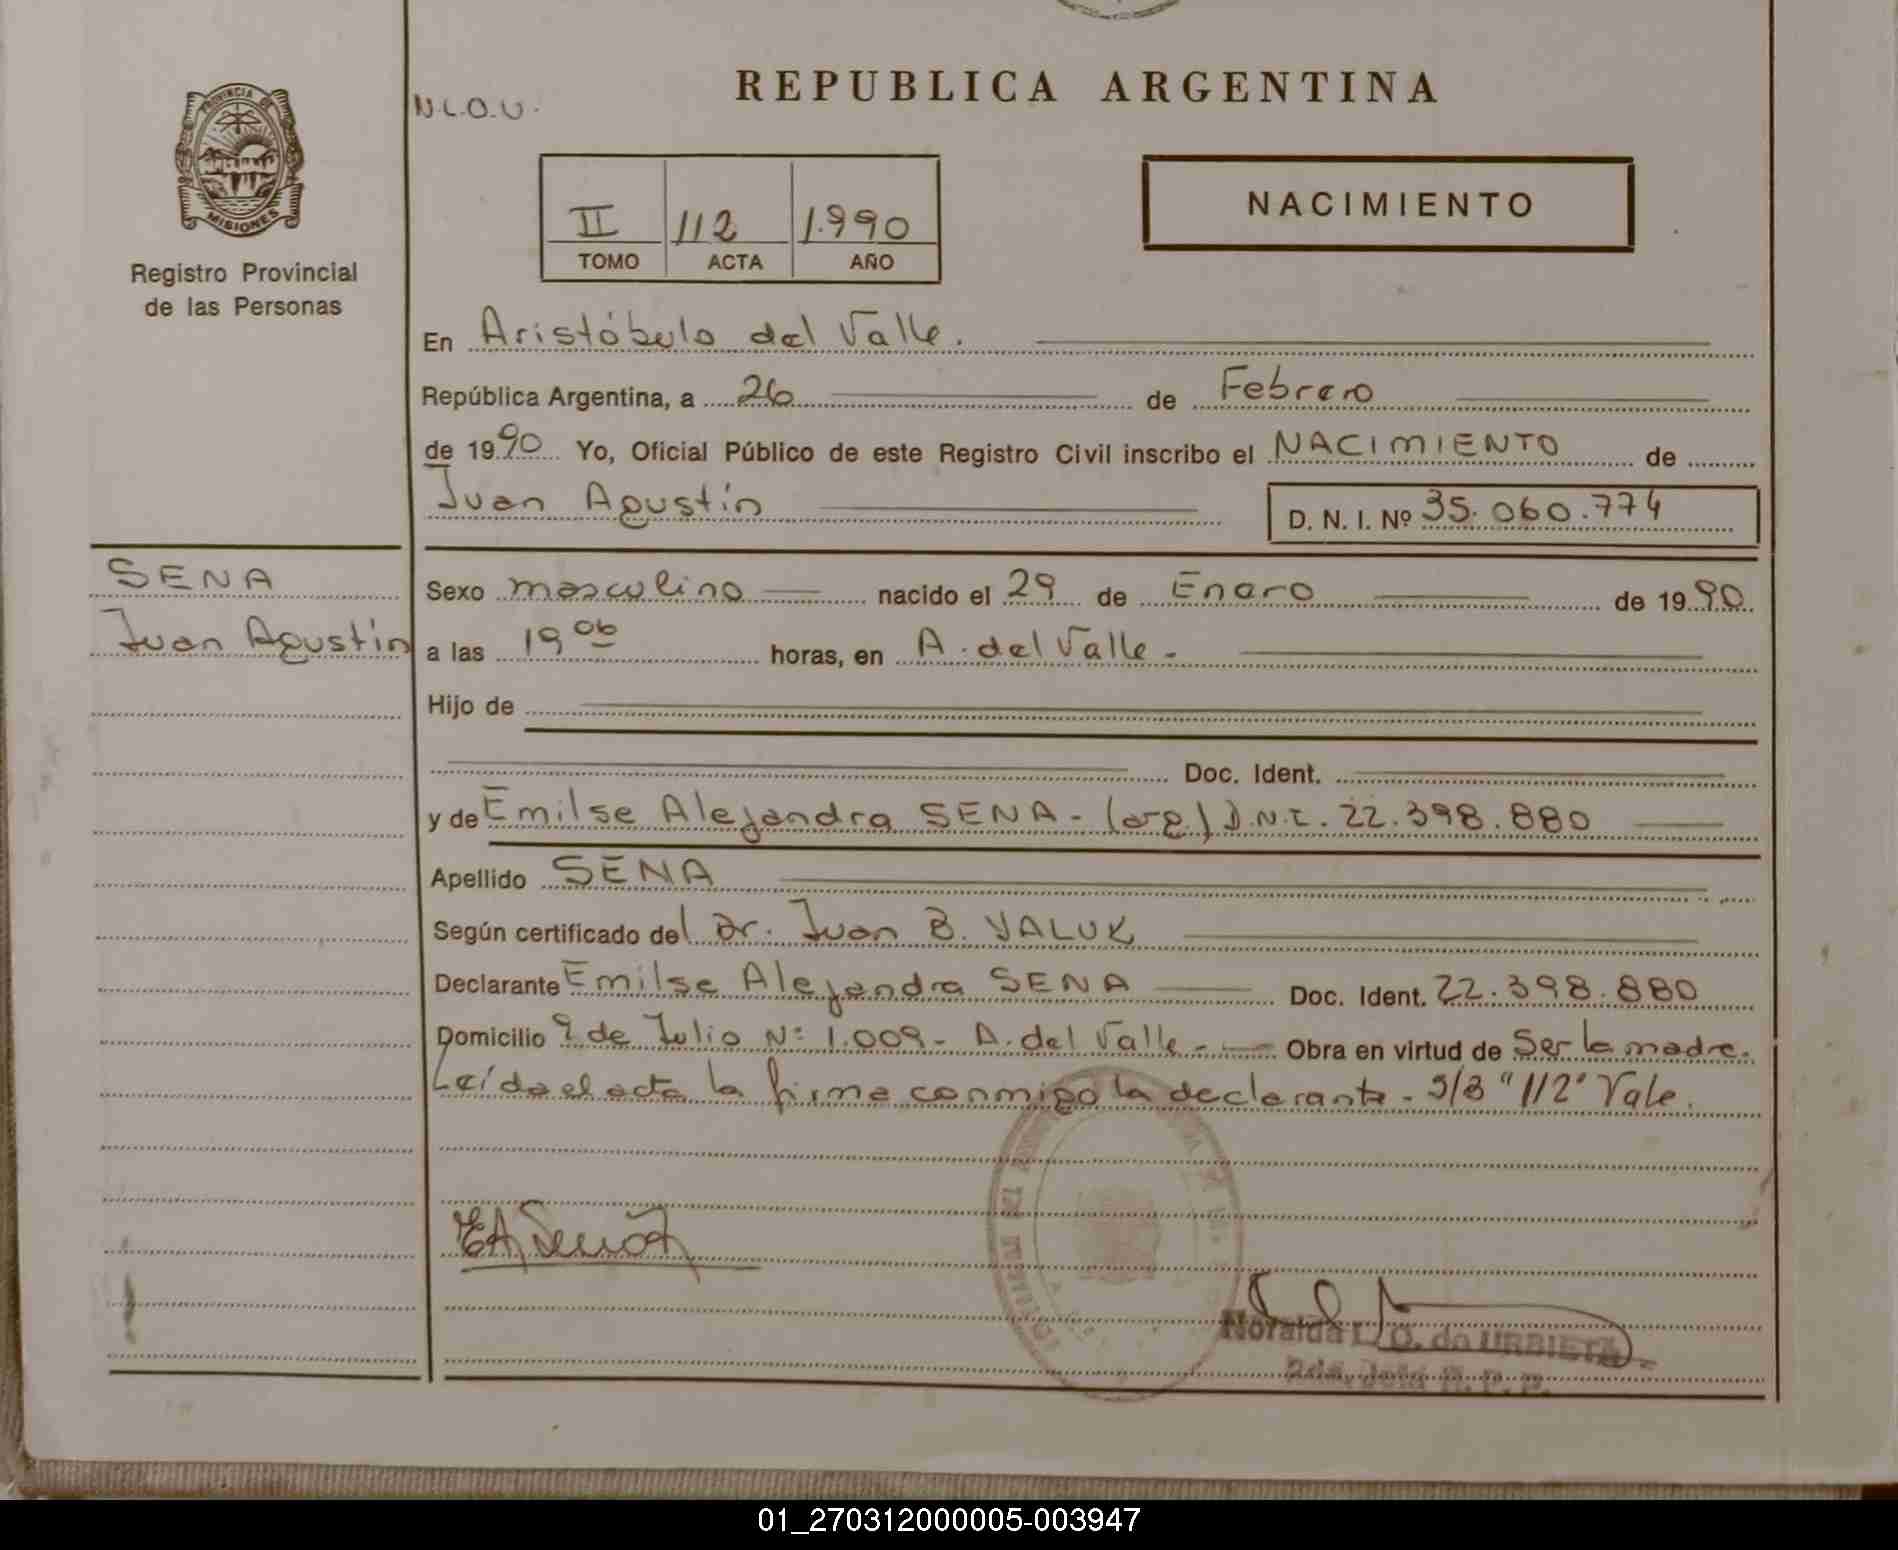 PROVINCIA DE
MISIONES
Registro Provincial
de las Personas
SENA
Juan Agustín
N.L.O.U.
REPUBLICA ARGENTINA
II 112 1.990
TOMO ACTA AÑO
NACIMIENTO
En Aristóbulo del Valle.
República Argentina, a 26 de Febrero
de 1990 Yo, Oficial Público de este Registro Civil inscribo el NACIMIENTO de
Juan Agustín D. N. I. Nº 35.060.774
Sexo masculino nacido el 29 de Enero de 1990
a las 19 06 horas, en A. del Valle -
Hijo de
Doc. Ident.
y de Emilse Alejandra SENA - (arg.) D.N.I. 22.398.880
Apellido SENA
Según certificado del Dr. Juan B. VALUK
Declarante Emilse Alejandra SENA Doc. Ident. 22.398.880
Domicilio 9 de Julio Nº 1.009 - A. del Valle - Obra en virtud de Ser la madre.
Leída el acta la firma conmigo la declarante - S/B "112" Vale.
EA Sena
Noralda L. O. de URBIETA
2da. Jefa R. P. P.
01_270312000005-003947